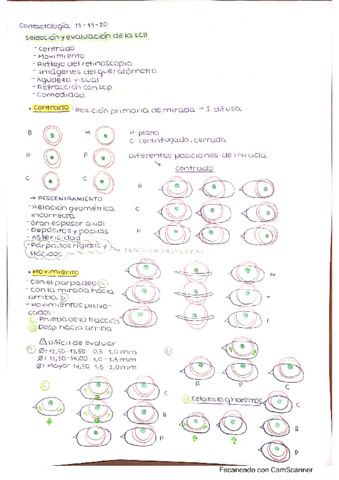 Contactología 11-11-20
Selección y evaluación de la LCP
- Centrado
- Movimiento
- Reflejo del retinoscopio
- Imágenes del queratómetro
- Agudeza visual
- Refracción con LCP
- Comodidad
• Centrado: Posición primaria de mirada → I. difusa
B M P: plana
C: centrifugada, cerrada
D P Diferentes posiciones de mirada
C C centrado
→ DESCENTRAMIENTO B
- Relación geométrica incorrecta C
- Gran espesor axial
- Depósitos y papilas P
- Asfericidad
- Párpados rígidos y flácidos → TENSIÓN PALPEBRAL
• Movimiento M
- con el parpadeo a
- con la mirada hacia arriba b C
- Movimientos provocados F
Prueba de la tracción
Drop hacia arriba
a ⚠ Difícil de evaluar b
Ø: 12,50-13,50 0,5-1,0 mm
Ø: 13,50-14,00 1,0-1,5 mm
Ø: Mayor 14,50 1,5-2,0 mm B P
C
c C Esta es la q haremos
B C
P B
P
Escaneado con CamScanner